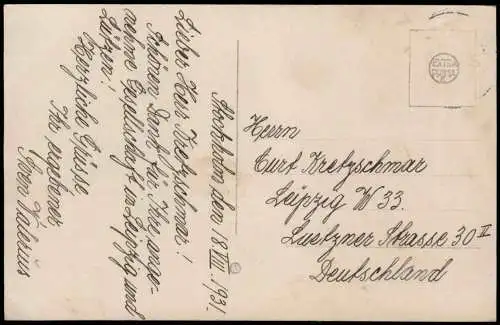 Stockholm den 18 VIII. 1931.
Lieber Herr Kretzschmar!
Schönen Dank für Ihre ange-
nehme Gesellschaft in Leipzig und
Lützen!
Herzliche Grüsse
Ihr ergebener
Sven
Herrn
Curt Kretzschmar
Leipzig W 33.
Luetzner Strasse 30 II
Deutschland